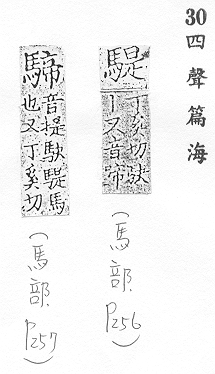 30 四聲篇海
騠
丁奚切駃
丨又音啼
(馬部 P256)
音提駃騠馬
也又丁奚切
(馬部 P257)